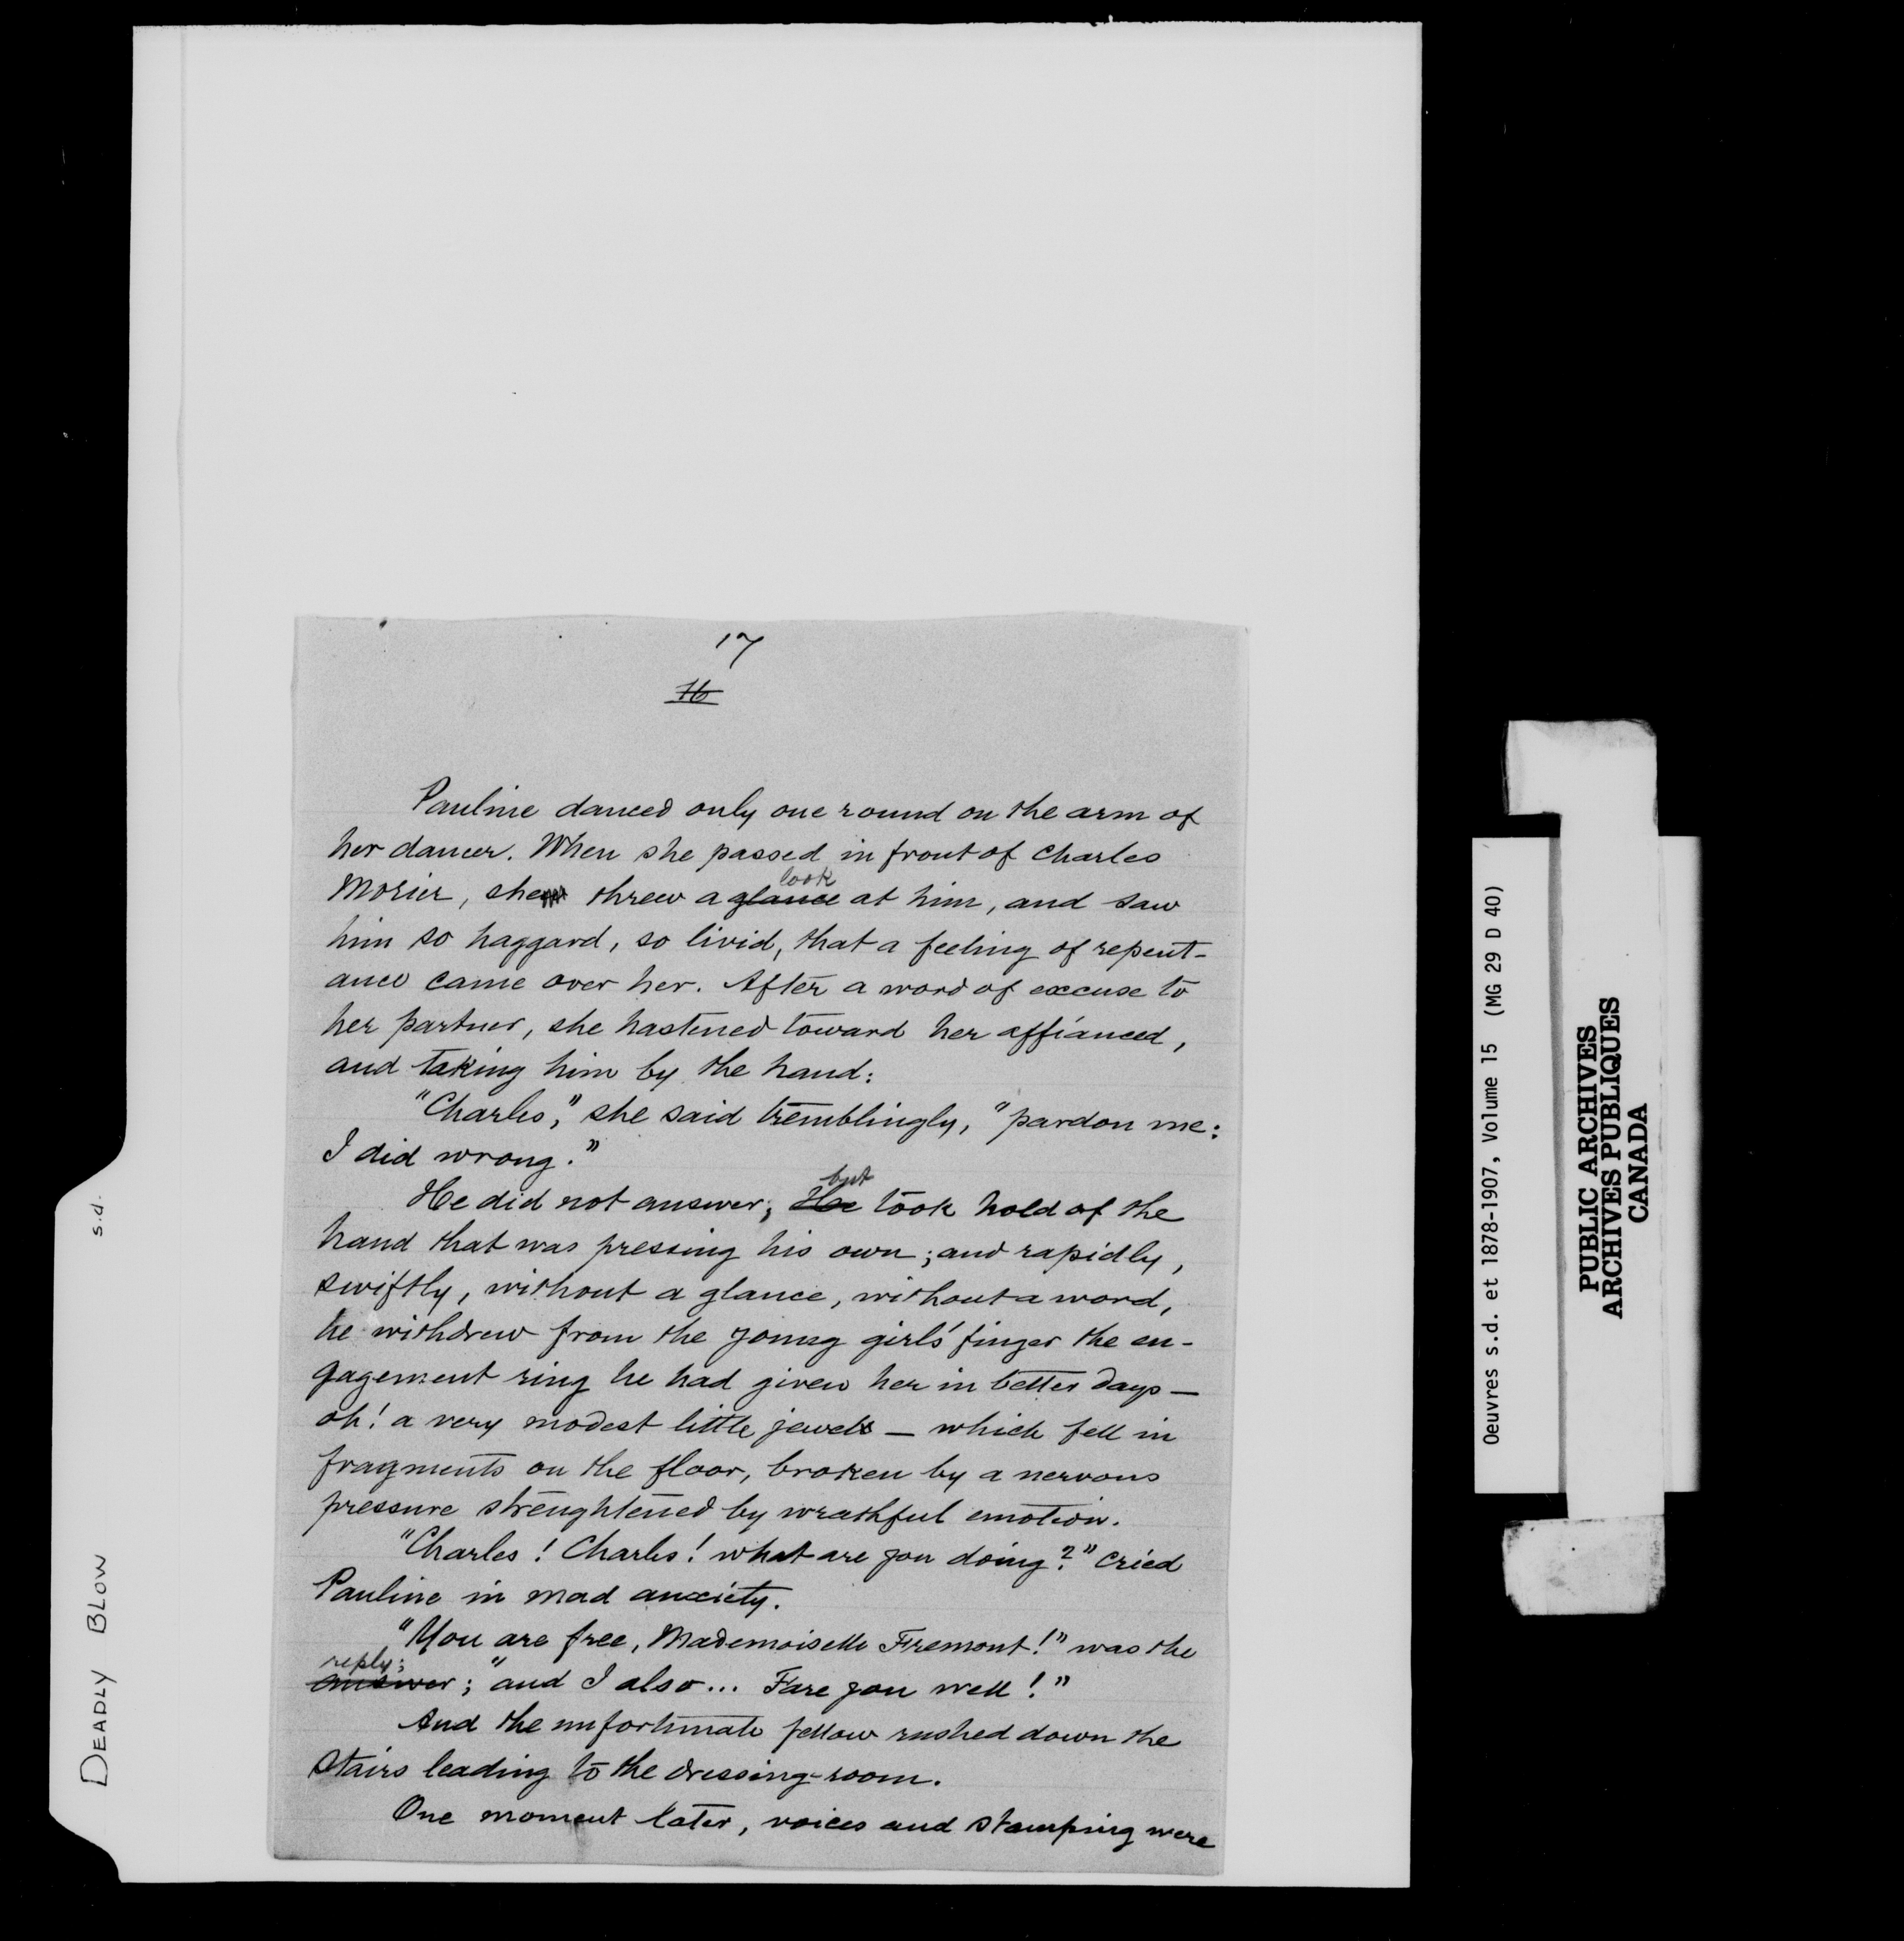 17
16
Pauline danced only one round on the arm of
her dancer. When she passed in front of Charles
look
Morier, she threw a glance at him, and saw
him so haggard, so livid, that a feeling of repent-
ance came over her. After a word of excuse to
her partner, she hastened toward her affianced,
and taking him by the hand:
"Charles," she said tremblingly, "pardon me:
I did wrong."
but
He did not answer; He took hold of the
hand that was pressing his own; and rapidly,
swiftly, without a glance, without a word,
he withdrew from the young girl's finger the en-
gagement ring he had given her in better days —
oh! a very modest little jewel — which fell in
fragments on the floor, broken by a nervous
pressure strenghtened by wrathful emotion.
"Charles! Charles! what are you doing?" cried
Pauline in mad anxiety.
"You are free, Mademoiselle Fremont!" was the
reply;
answer; "and I also... Fare you well!"
And the unfortunate fellow rushed down the
stairs leading to the dressing-room.
One moment later, voices and stamping were
DEADLY BLOW s.d.
Oeuvres s.d. et 1878-1907, Volume 15 (MG 29 D 40)
PUBLIC ARCHIVES
ARCHIVES PUBLIQUES
CANADA